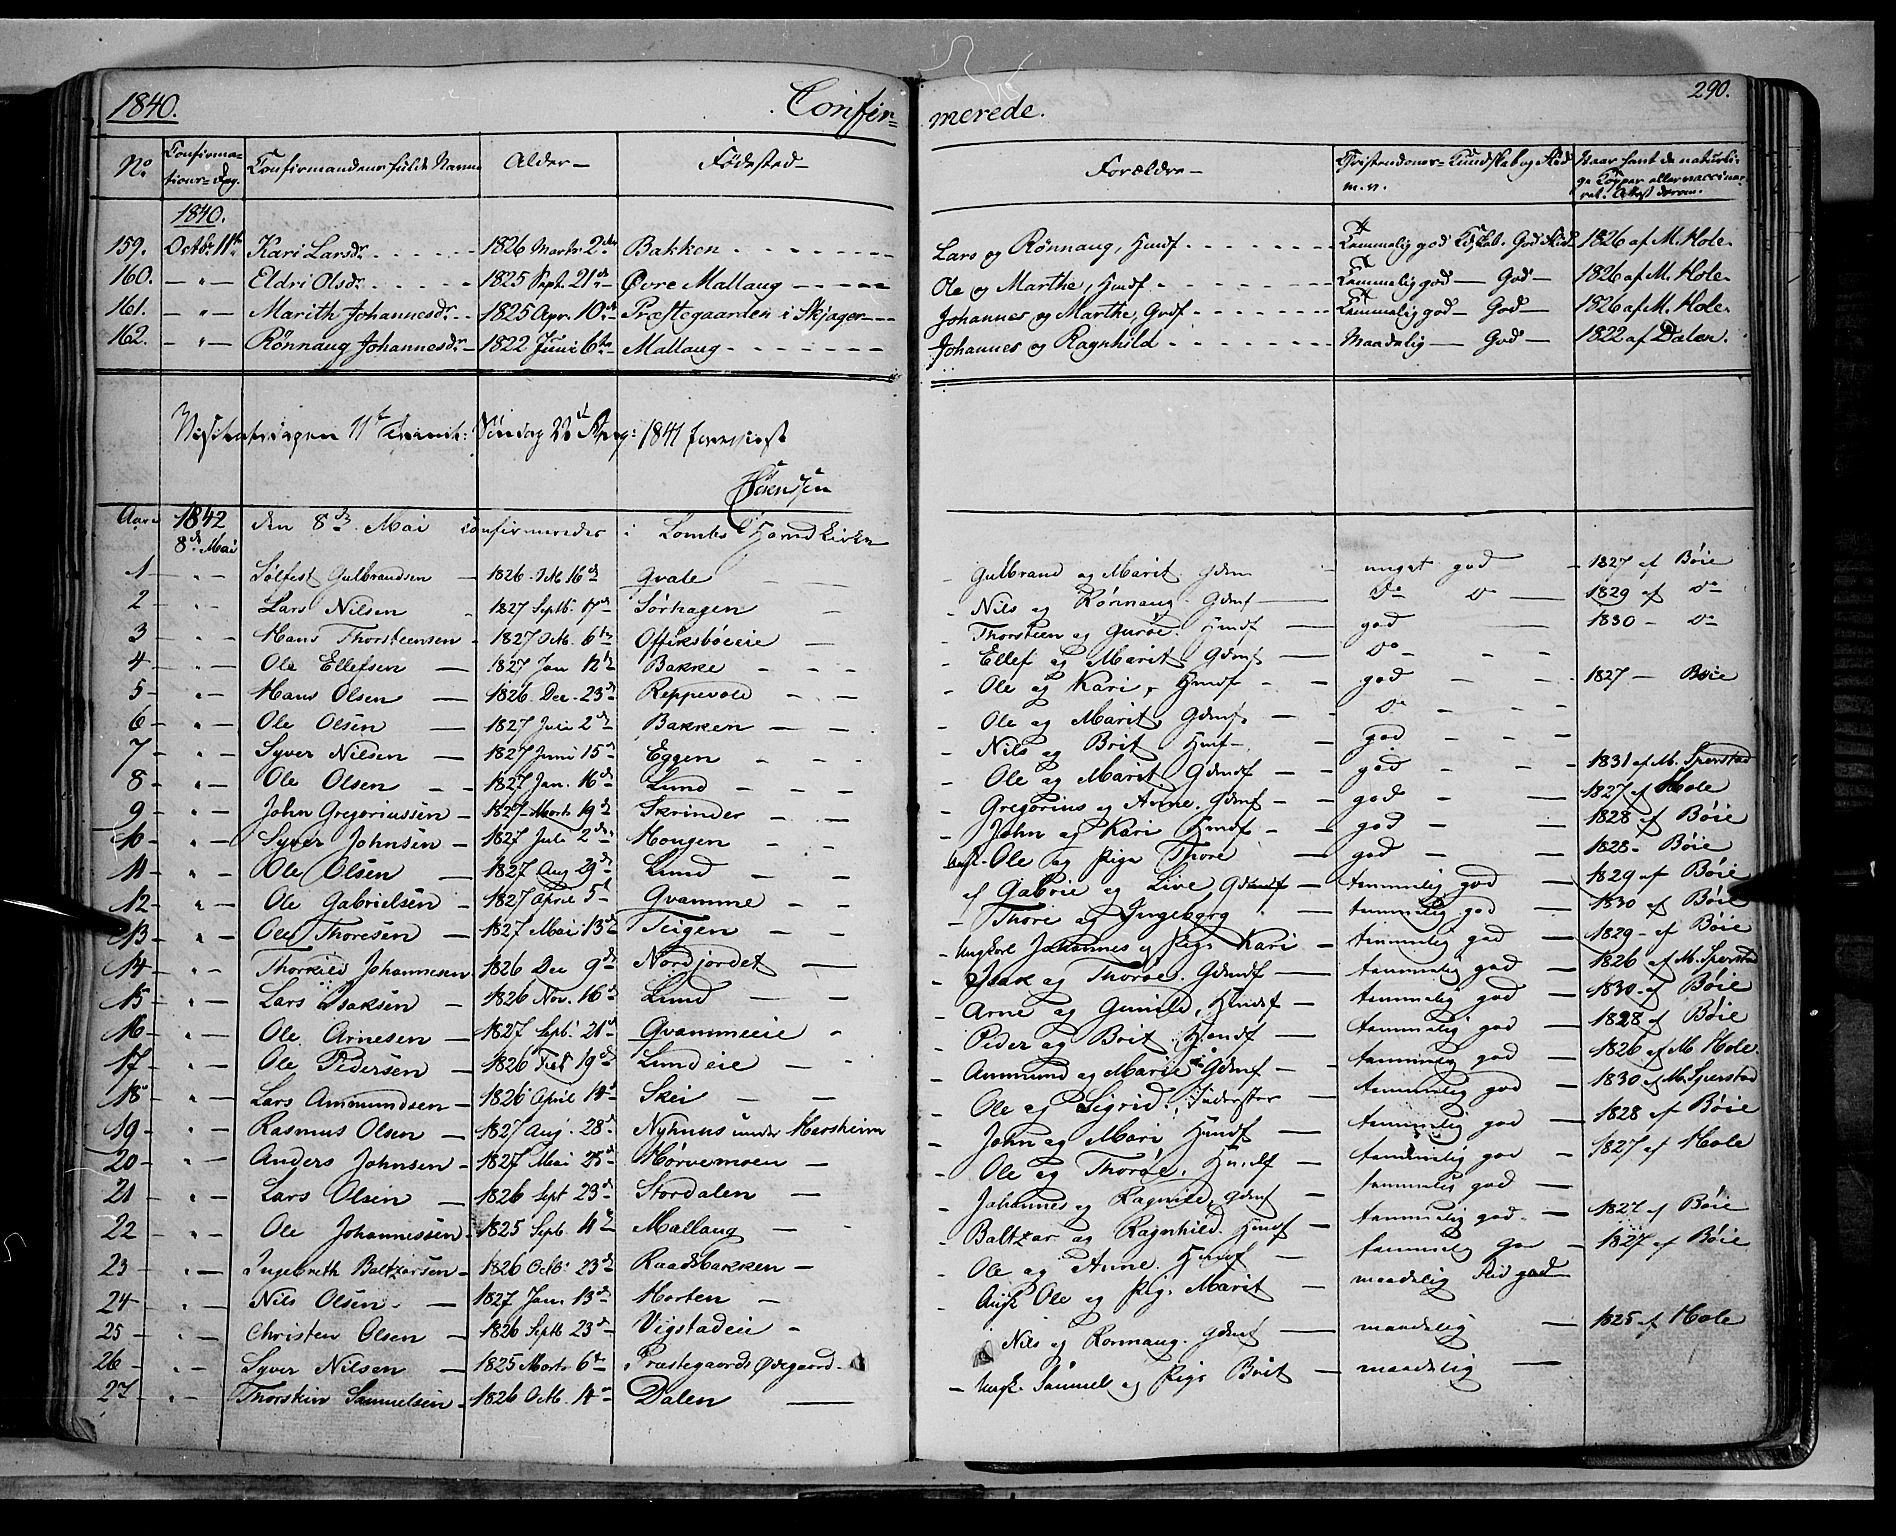 1840. Confir=
merede. 290.
No Confirma-tions-Dag. Confirmandens fulde Navne Alder- Fødested- Forældre- Christendoms- Kundskab og Flid m. v. Naar havt de naturlige Kopper eller vaccineret. Attest derom.
1840.
159. Octbr 11te Kari Larsdr 1826 Marts 2den Bakken Lars og Rønnaug, Hmdf Temmelig god Kdskab. God Flid 1826 af M. Hole
160. — " — Eldri Olsdr 1825 Sept. 21de Øvre Mallaug Ole og Marthe, Hmdf Temmelig god — God — 1826 af M. Hole
161. — " — Marith Johannesdr 1825 Apr. 10de Præstegaarden i Skjager Johannes og Marthe, Grdf Temmelig god — God — 1826 af M. Hole
162. — " — Rønnaug Johannesdr 1822 Juni 6te Mallaug Johannes og Ragnhild Maadelig — God — 1822 af Dalen.
11te Trinit: Søndag 1841
Aaret 1842 den 8de Mai confirmerede i Lombs Hovedkirke
8de Mai
1 — " — Sølfest Gulbrandsen 1826 16de Qvale Gulbrand og Marit Gdmf meget god 1827 af Bøie
2 — " — Lars Nilsen 1827 Septb. 17de Sørhagen Nils og Rønnaug Gdmf Do Do 1829 af Do
3 — " — Hans Thorsteensen 1827 Octb. 6te Offiksbøeeie Thorsteen og Guroe. Hmdf god 1830 — Do
4 — " — Ole Ellefsen 1827 Jan 12te Bakke Ellef og Marit Gdmf Do
5 — " — Hans Olsen 1826 Dec. 23de Reppevold Ole og Kari, Hmdf god 1827 — Bøie
6 — " — Ole Olsen 1827 Juli 2de Bakken Ole og Marit, Gdmf. Do
7 — " — Syver Nilsen 1827 Juni 15de Eggen Nils og Brit Hmf god
8 — " — Ole Olsen 1827 Jan. 16de Lund Ole og Marit Gdmdf god 1831 af M. Sperstad
9 — " — John Gregoriussen 1827 Marts 19de Skrinder Gregorius og Anne. Gdmf god 1827 af Hole
10 — " — Syver Johnsen 1827 Juli 2de Hougen John og Kari Hmdf god 1828 af Bøie
11 — " — Ole Olsen 1827 Aug 29de Lund Ungk. Ole og Pige Thore god 1828 — Bøie
12 — " — Ole Gabrielsen 1827 April 5te Qvamme af Gabriel og Live, Gdmdf temmelig god 1829 af Bøie
13 — " — Ole Thoresen 1827 Mai 13de Teigen Thore og Ingeborg temmelig god 1830 af Bøie
14 — " — Thorkild Johannesen 1826 Dec 9de Nordjordet Ungkarl Johannes og Pige Kari temmelig god 1829 — af Bøie
15 — " — Lars Isaksen 1826 Nov. 16de Lund Isak og Thoroe. Gdmdf temmelig god 1826 af M. Sperstad
16 — " — Ole Arnesen 1827 Septb. 21de Qvammeeie Arne og Gunild, Hmdf temmelig god 1830 — af Bøie
17 — " — Ole Pedersen 1826 Feb 19de Lundeie Peder og Brit. Hmdf temmelig god 1828 af Bøie
18 — " — Lars Ammundsen 1826 April 14de Skei Ammund og Marie Gdmf temmelig god 1826 af M. Hole.
19 — " — Rasmus Olsen 1827 Aug. 28de Nyhuus under Ole og Sigrid. Inderster temmelig god 1830 af M. Sperstad
20 — " — Anders Johnsen 1827 Mai 25de Hørvemoen John og Mari Hmdf temmelig god 1828 af Bøie
21 — " — Lars Olsen 1826 Sept 23de Stordalen Ole og Thoroe. Hmdf temmelig god 1827 af Hole
22 — " — Ole Johannessen 1825 Septb. 4de Mallaug Johannes og Ragnild Gdmf temmelig god
23 — " — Ingebreth Baltzarsen 1826 Octb. 23de Raadsbakken Baltzar og Ragnhild. Hmdf temmelig god 1827 af Bøie
24 — " — Nils Olsen 1827 Jan. 13de Horten Ole og Anne. Hmdf temmelig god 1827 af Bøie
25 — " — Christen Olsen 1826 Septb 23de Vigstadeie Ungk Ole og Pig. Marit maadelig Flid god
26 — " — Syver Nilsen 1825 Marts 6te Præstegaards Ødegaard Nils og Rønnaug. Gdmf maadelig 1825 af Hole
27 — " — Thorstein Samuelsen 1826 Octb. 4de Dalen Ungk. Samuel og Pige Brit maadelig